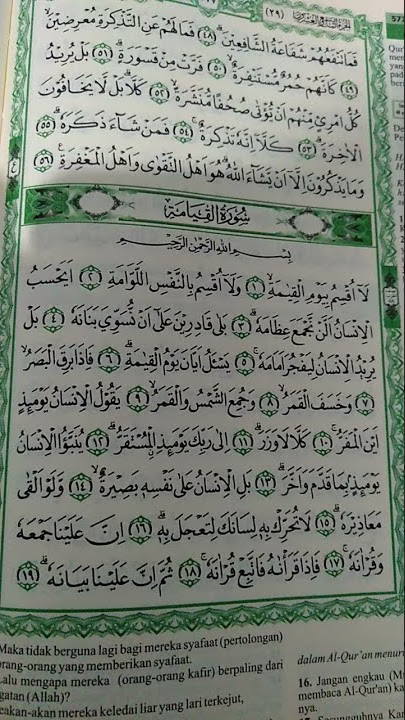 الجزء التاسع والعشرون
(٢٩)
٥٧٧
فَمَا تَنْفَعُهُمْ شَفَاعَةُ الشَّافِعِيْنَۗ ﴿٤٨﴾ فَمَا لَهُمْ عَنِ التَّذْكِرَةِ مُعْرِضِيْنَۙ
﴿٤٩﴾ كَاَنَّهُمْ حُمُرٌ مُّسْتَنْفِرَةٌۙ ﴿٥٠﴾ فَرَّتْ مِنْ قَسْوَرَةٍۗ ﴿٥١﴾ بَلْ يُرِيْدُ
كُلُّ امْرِئٍ مِّنْهُمْ اَنْ يُّؤْتٰى صُحُفًا مُّنَشَّرَةًۙ ﴿٥٢﴾ كَلَّاۗ بَلْ لَّا يَخَافُوْنَ
الْاٰخِرَةَۗ ﴿٥٣﴾ كَلَّآ اِنَّهٗ تَذْكِرَةٌۚ ﴿٥٤﴾ فَمَنْ شَاۤءَ ذَكَرَهٗۗ ﴿٥٥﴾
وَمَا يَذْكُرُوْنَ اِلَّآ اَنْ يَّشَاۤءَ اللّٰهُۗ هُوَ اَهْلُ التَّقْوٰى وَاَهْلُ الْمَغْفِرَةِ ﴿٥٦﴾
سُوْرَةُ الْقِيَامَةِ
بِسْمِ اللّٰهِ الرَّحْمٰنِ الرَّحِيْمِ
لَآ اُقْسِمُ بِيَوْمِ الْقِيٰمَةِۙ ﴿١﴾ وَلَآ اُقْسِمُ بِالنَّفْسِ اللَّوَّامَةِۗ ﴿٢﴾ اَيَحْسَبُ
الْاِنْسَانُ اَلَّنْ نَّجْمَعَ عِظَامَهٗۗ ﴿٣﴾ بَلٰى قَادِرِيْنَ عَلٰٓى اَنْ نُّسَوِّيَ بَنَانَهٗ ﴿٤﴾ بَلْ
يُرِيْدُ الْاِنْسَانُ لِيَفْجُرَ اَمَامَهٗۚ ﴿٥﴾ يَسْـَٔلُ اَيَّانَ يَوْمُ الْقِيٰمَةِۗ ﴿٦﴾ فَاِذَا بَرِقَ الْبَصَرُۙ
﴿٧﴾ وَخَسَفَ الْقَمَرُۙ ﴿٨﴾ وَجُمِعَ الشَّمْسُ وَالْقَمَرُۙ ﴿٩﴾ يَقُوْلُ الْاِنْسَانُ يَوْمَىِٕذٍ
اَيْنَ الْمَفَرُّۚ ﴿١٠﴾ كَلَّا لَا وَزَرَۗ ﴿١١﴾ اِلٰى رَبِّكَ يَوْمَىِٕذِ ِۨالْمُسْتَقَرُّۗ ﴿١٢﴾ يُنَبَّؤُا الْاِنْسَانُ
يَوْمَىِٕذٍۢ بِمَا قَدَّمَ وَاَخَّرَۗ ﴿١٣﴾ بَلِ الْاِنْسَانُ عَلٰى نَفْسِهٖ بَصِيْرَةٌۙ ﴿١٤﴾ وَّلَوْ اَلْقٰى
مَعَاذِيْرَهٗۗ ﴿١٥﴾ لَا تُحَرِّكْ بِهٖ لِسَانَكَ لِتَعْجَلَ بِهٖۗ ﴿١٦﴾ اِنَّ عَلَيْنَا جَمْعَهٗ
وَقُرْاٰنَهٗۚ ﴿١٧﴾ فَاِذَا قَرَأْنٰهُ فَاتَّبِعْ قُرْاٰنَهٗۚ ﴿١٨﴾ ثُمَّ اِنَّ عَلَيْنَا بَيَانَهٗۗ ﴿١٩﴾
Maka tidak berguna lagi bagi mereka syafaat (pertolongan)
orang-orang yang memberikan syafaat.
Lalu mengapa mereka (orang-orang kafir) berpaling dari
gatan (Allah)?
eakan-akan mereka keledai liar yang lari terkejut,
dalam Al-Qur'an menuru
16. Jangan engkau (Mu
membaca Al-Qur'an) ka
nya.
17. Sesungguhnya Kam